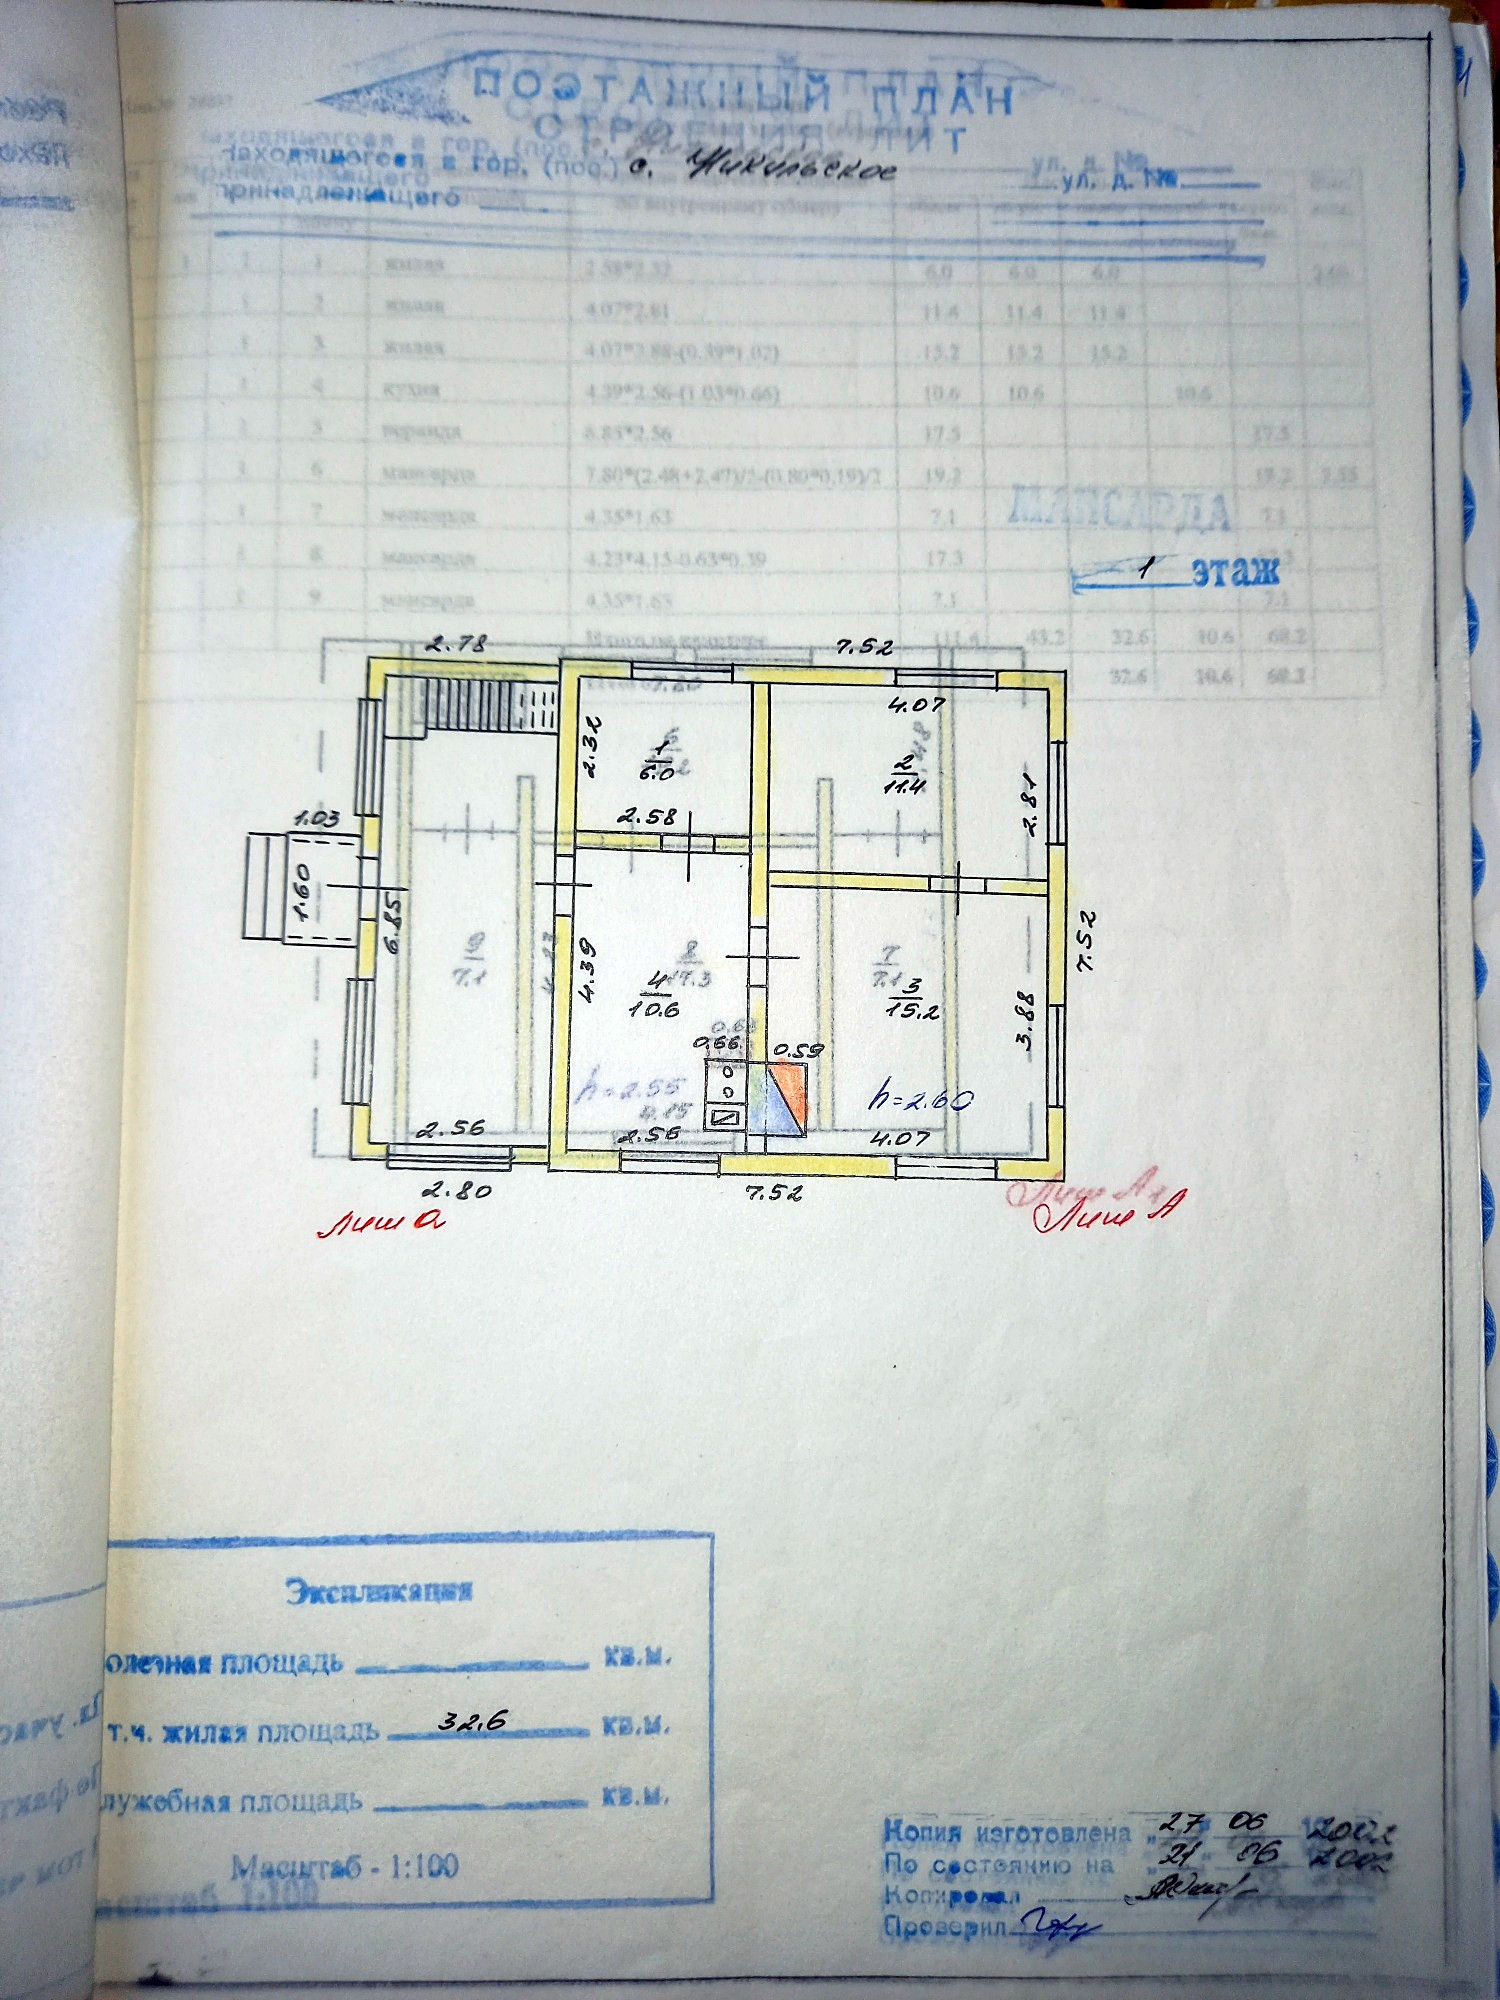 ПОЭТАЖНЫЙ ПЛАН
СТРОЕНИЯ ЛИТ
находящегося в гор. (пос.) с. Никульское ул. д. №
принадлежащего
1 1 1 жилая 2.58*2.32 6.0 6.0 6.0
1 2 жилая 4.07*2.81 11.4 11.4 11.4
1 3 жилая 4.07*3.88-(0.59*1.02) 15.2 15.2 15.2
1 4 кухня 4.39*2.56-(1.03*0.66) 10.6 10.6 10.6
1 5 веранда 6.85*2.56 17.5 17.5
1 6 мансарда 7.80*(2.48+2.47)/2-(0.80*0.19)/2 19.2 19.2 2.55
1 7 мансарда 4.35*1.63 7.1 7.1
МАНСАРДА
1 8 мансарда 4.23*4.15-0.63*0.39 17.3
1 этаж
1 9 мансарда 4.35*1.63 7.1 7.1
43.2 32.6 10.6 68.2
32.6 10.6 68.2
2.78
7.52
7.80
4.07
2.32
1
6.0
6
2
11.4
2.48
2.81
2.58
1.03
1.60
6.85
9
7.1
4.39
8
17.3
4
10.6
7
7.1
3
15.2
3.88
7.52
0.66
0.59
h=2.55
4.15
h=2.60
2.56
2.56
4.07
2.80
7.52
Лит а
Лит А1
Лит А
Экспликация
олезная площадь кв.м.
т.ч. жилая площадь 32.6 кв.м.
лужебная площадь кв.м.
Масштаб - 1:100
асштаб 1:100
Копия изготовлена „27" 06 2002
По состоянию на „21" 06 2002
Копировал
Проверил